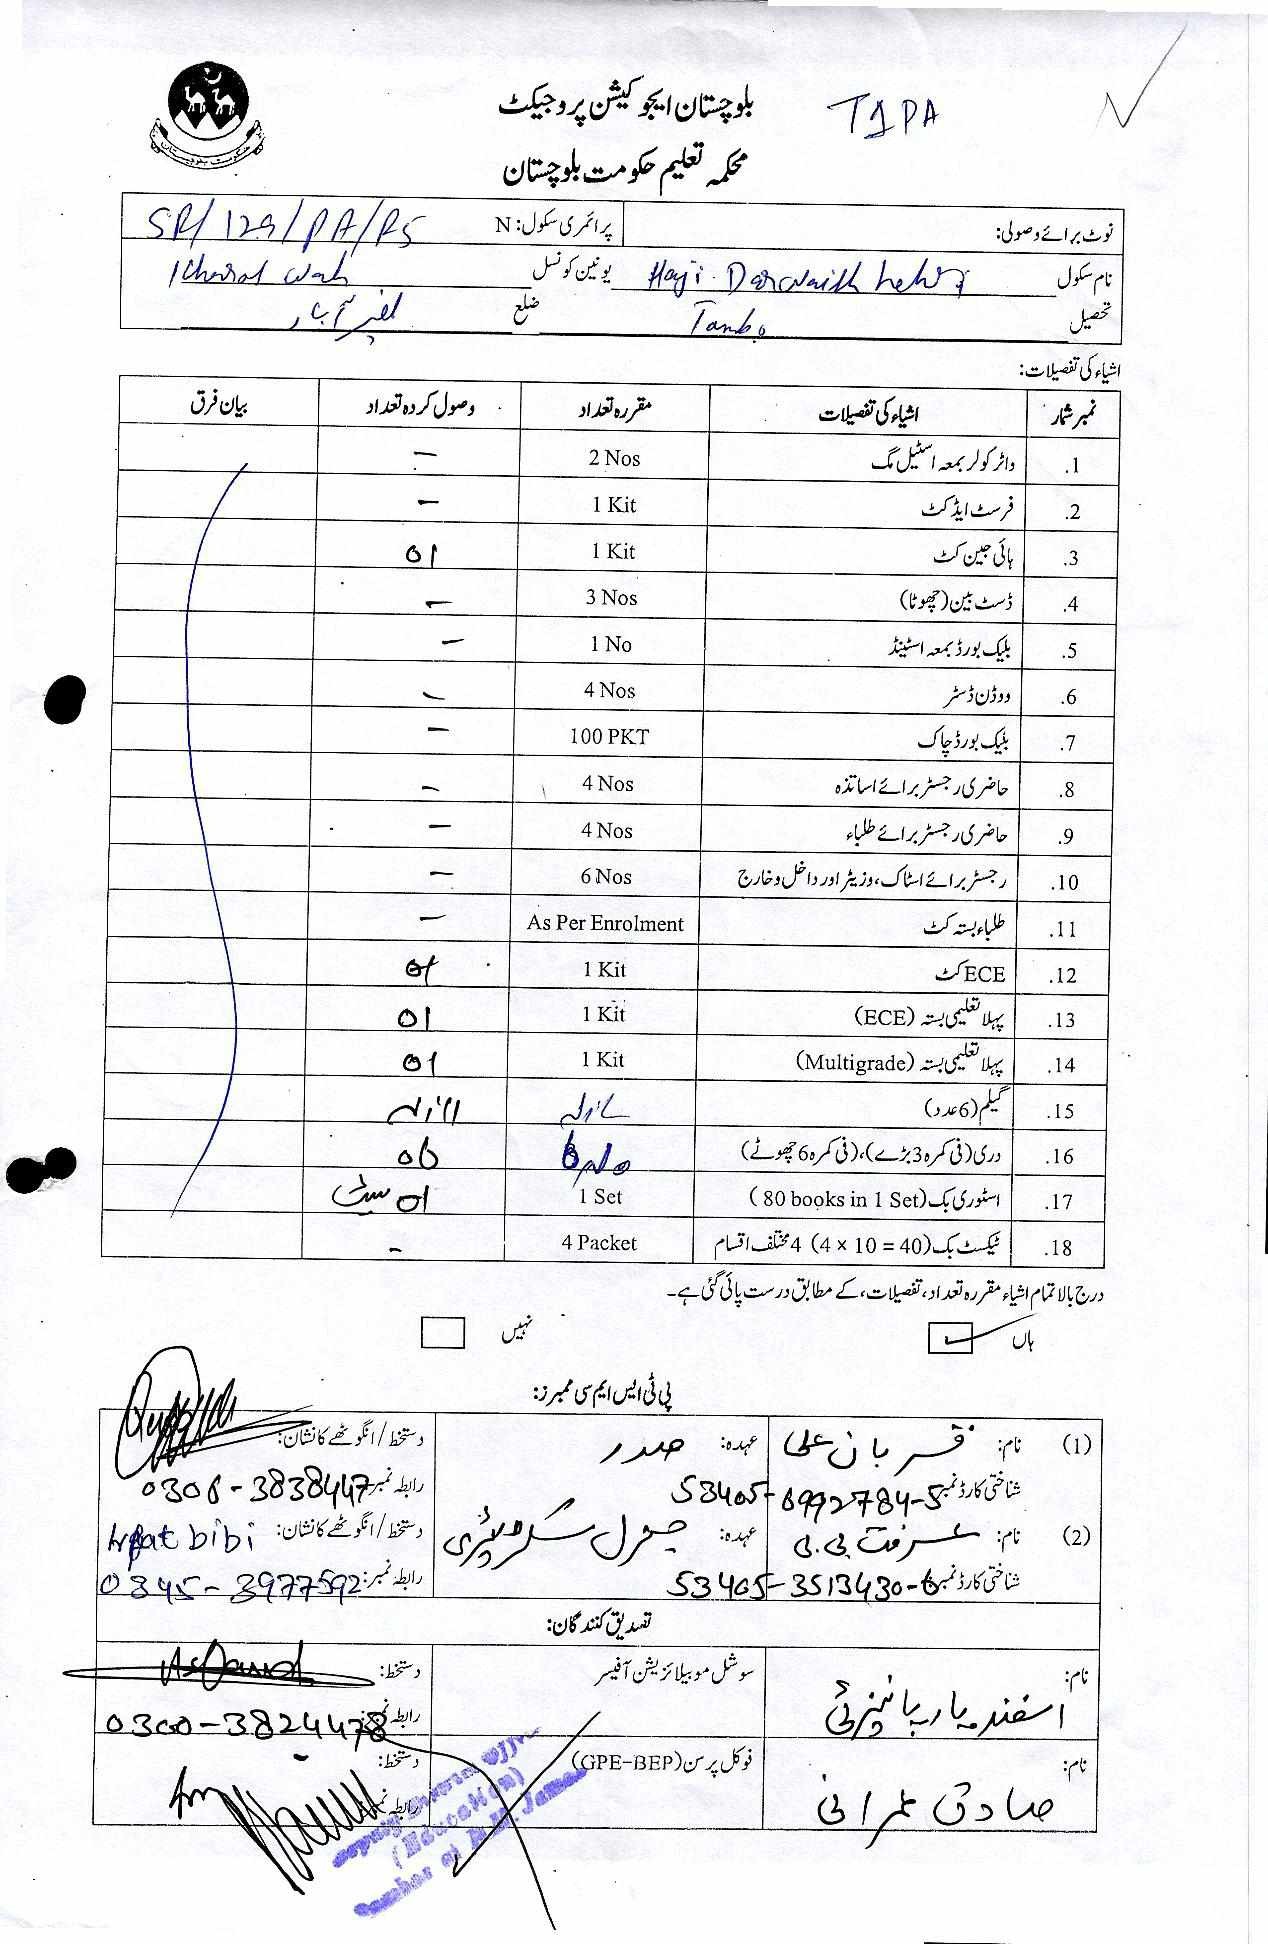 بلوچستان ایجوکیشن پروجیکٹ T1PA
محکمہ تعلیم حکومت بلوچستان
حکومت بلوچستان
نوٹ برائے وصولی: پرائمری سکول: N SR/129/PA/PS
نام سکول Haji Darwaish یونین کونسل wah
تحصیل Tambo ضلع نصیر آباد
اشیاء کی تفصیلات:
نمبر شمار اشیاء کی تفصیلات مقررہ تعداد وصول کردہ تعداد بیان فرق
1. واٹر کولر بمعہ اسٹیل مگ 2 Nos –
2. فرسٹ ایڈ کٹ 1 Kit –
3. ہائی جین کٹ 1 Kit 01
4. ڈسٹ بین (چھوٹا) 3 Nos –
5. بلیک بورڈ بمعہ اسٹینڈ 1 No –
6. ووڈن ڈسٹر 4 Nos –
7. بلیک بورڈ چاک 100 PKT –
8. حاضری رجسٹر برائے اساتذہ 4 Nos –
9. حاضری رجسٹر برائے طلباء 4 Nos –
10. رجسٹر برائے اسٹاک، وزیٹر اور داخل و خارج 6 Nos –
11. طلباء بستہ کٹ As Per Enrolment –
12. ECE کٹ 1 Kit 01
13. پہلا تعلیمی بستہ (ECE) 1 Kit 01
14. پہلا تعلیمی بستہ (Multigrade) 1 Kit 01
15. گیلم (6 عدد)
16. دری (فی کمرہ 3 بڑے)، (فی کمرہ 6 چھوٹے) 06
17. اسٹوری بک (80 books in 1 Set) 1 Set 01 سیٹ
18. ٹیکسٹ بک (4 x 10 = 40) 4 مختلف اقسام 4 Packet –
درج بالا تمام اشیاء مقررہ تعداد، تفصیلات، کے مطابق درست پائی گئی ہے۔
ہاں نہیں
پی ٹی ایس ایم سی ممبرز:
(1) نام: قربان علی عہدہ: صدر دستخط/انگوٹھے کا نشان:
شناختی کارڈ نمبر 53405-6992784-5 رابطہ نمبر 0306-3838447
(2) نام: عرفت بی بی عہدہ: جنرل سکریٹری دستخط/انگوٹھے کا نشان: Irfat bibi
شناختی کارڈ نمبر 53405-3513430-6 رابطہ نمبر: 0345-3977592
تصدیق کنندگان:
نام: اسفند یار سوشل موبیلائزیشن آفیسر دستخط:
رابطہ نمبر 0300-3824478
نام: صادق عمرانی فوکل پرسن (GPE-BEP) دستخط:
رابطہ نمبر
(Education)